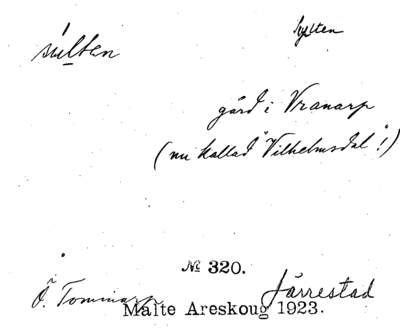 sulten hylten
gård i Vranarp
(nu kallad "Vilhelmsdal"!)
№ 320.
Ö. Tommarp Järrestad
Malte Areskoug 1923.